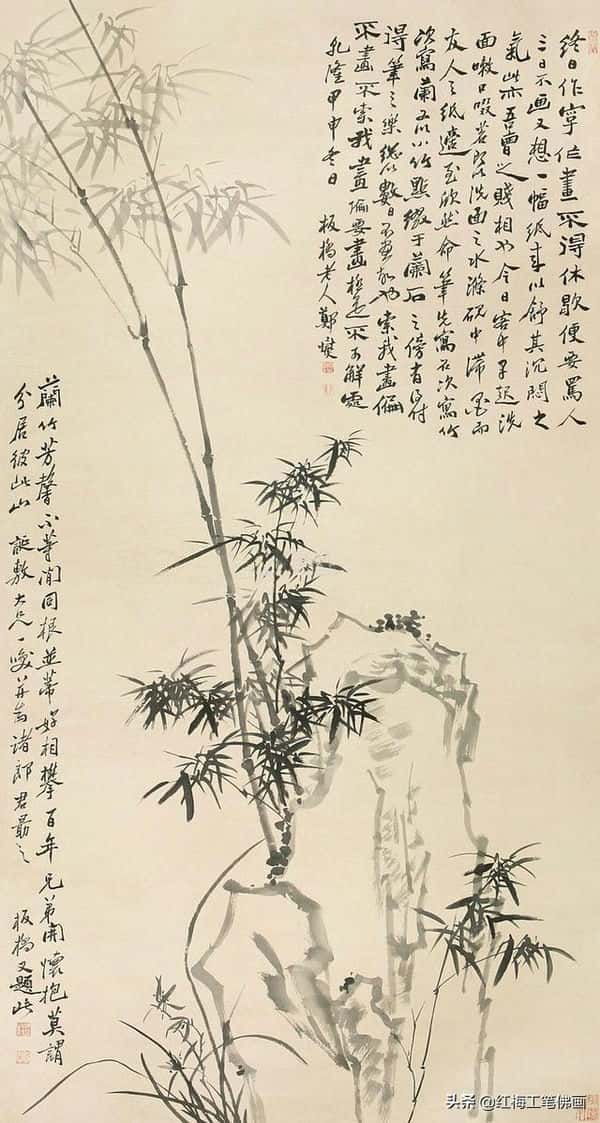 終日作字作畫不得休歇便要罵人
三日不画又想一幅紙來以舒其沉悶之
氣此亦吾曹之賤相也今日客中早起洗
面嗽口啜茗即以洗面之水滌硯中滯墨而
友人之紙適至欣然命筆先寫石次寫竹
次寫蘭又以小竹點綴于蘭石之傍有得时
得筆之樂總以數日不畫故也索我畫偏
不畫不索我畫偏要畫極是不可解處
乾隆甲申冬日 板橋老人鄭燮
蘭竹芳馨不等閒同根並蒂好相攀百年兄弟開懷抱莫謂
分居彼此山 誕敷大兄一咲并為諸郎君勖之 板橋又題此
头条 @红梅工笔佛画